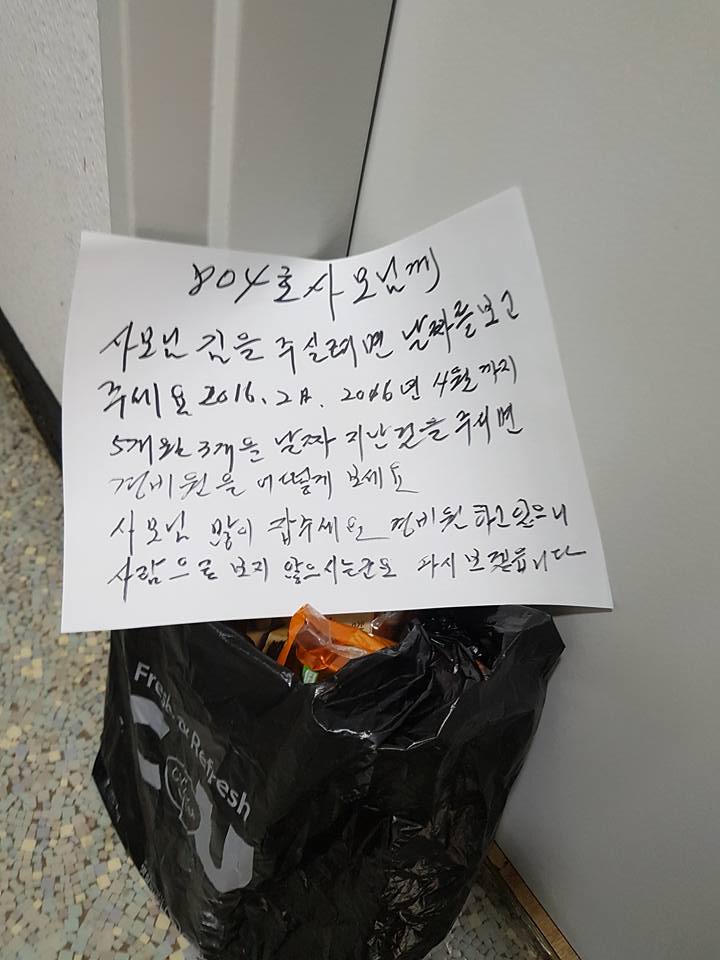 804호 사모님께
사모님 김을 주실려면 날짜를 보고
주세요 2016. 2月. 2016년 4월까지
5개월 3개월 날짜 지난 걸을 주시면
경비원을 어떻게 보세요
사모님 많이 잡수세요 경비원 하고 있으니
사람으로 보지 않으시는군요 다시 보겠읍니다
Fresh Refresh
CU